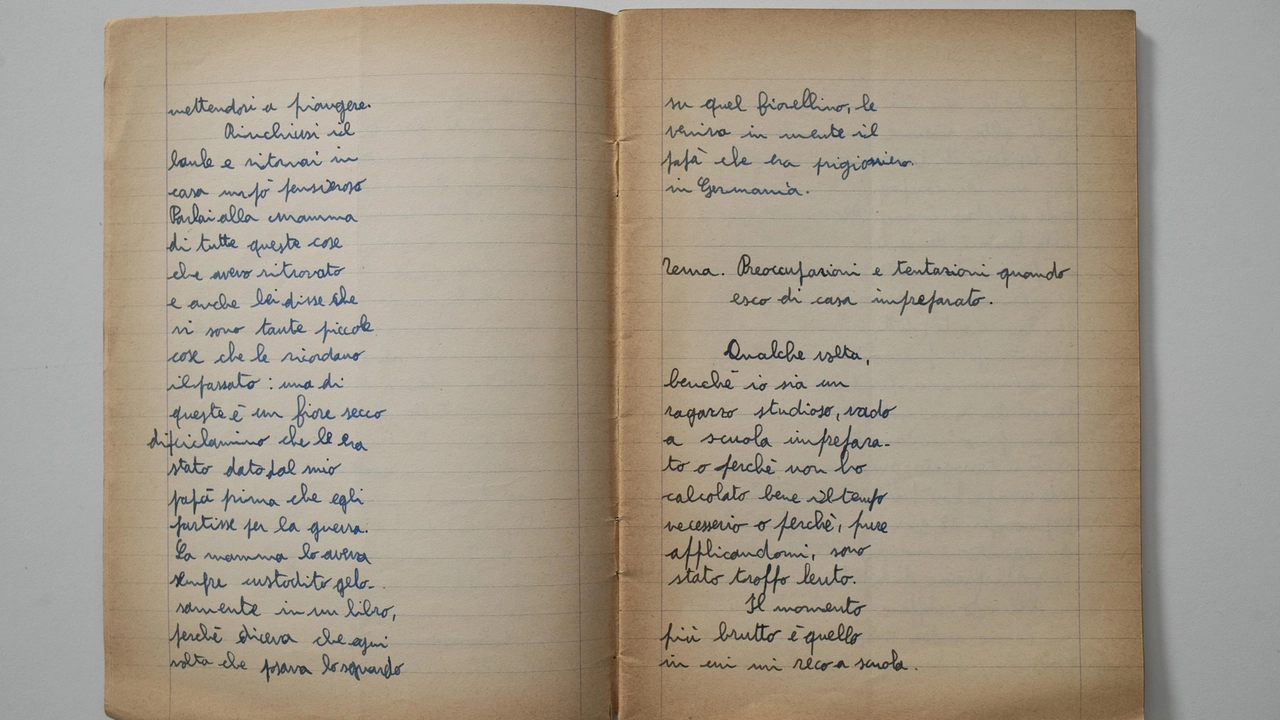 mettendosi a piangere.
Rinchiusi il
baule e ritornai in
casa un pò pensieroso
Parlai alla mamma
di tutte queste cose
che avevo ritrovato
e anche lei disse che
vi sono tante piccole
cose che le ricordano
il passato : una di
queste è un fiore secco
di ciclamino che le era
stato dato dal mio
papà prima che egli
partisse per la guerra.
La mamma lo aveva
sempre custodito gelo-
samente in un libro,
perchè diceva che ogni
volta che posava lo sguardo
su quel fiorellino, le
veniva in mente il
papà che era prigioniero
in Germania.
Tema. Preoccupazioni e tentazioni quando
esco di casa impreparato.
Qualche volta,
benchè io sia un
ragazzo studioso, vado
a scuola imprepara-
to o perchè non ho
calcolato bene il tempo
necessario o perchè, pure
applicandomi, sono
stato troppo lento.
Il momento
più brutto è quello
in cui mi reco a scuola.